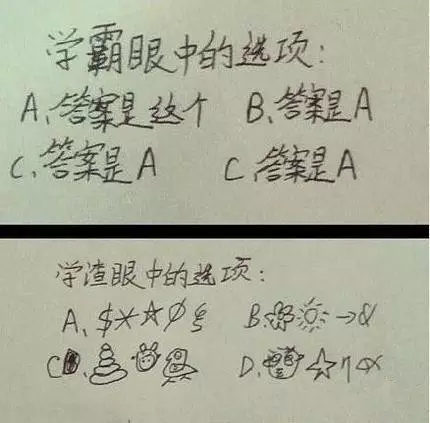 学霸眼中的选项:
A、答案是这个 B、答案是A
C、答案是A C、答案是A
学渣眼中的选项:
A、$⚹☆
B、→&
C、
D、☆